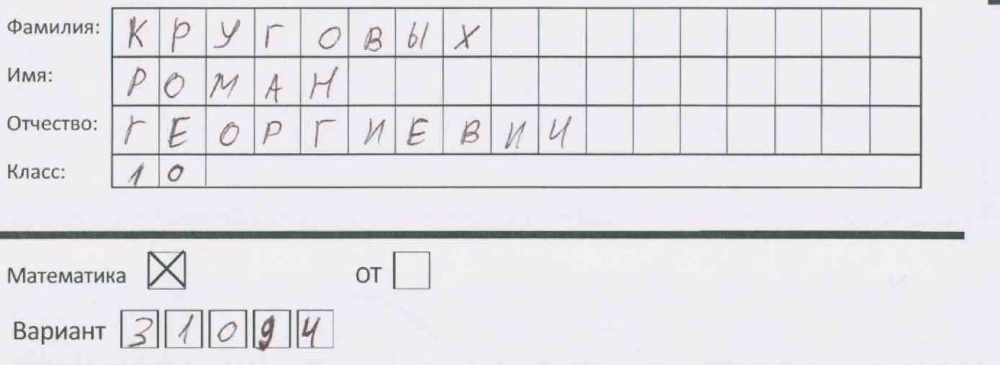 Фамилия: КРУГОВЫХ
Имя: РОМАН
Отчество: ГЕОРГИЕВИЧ
Класс: 10
Математика ☒ ОТ ☐
Вариант 31094